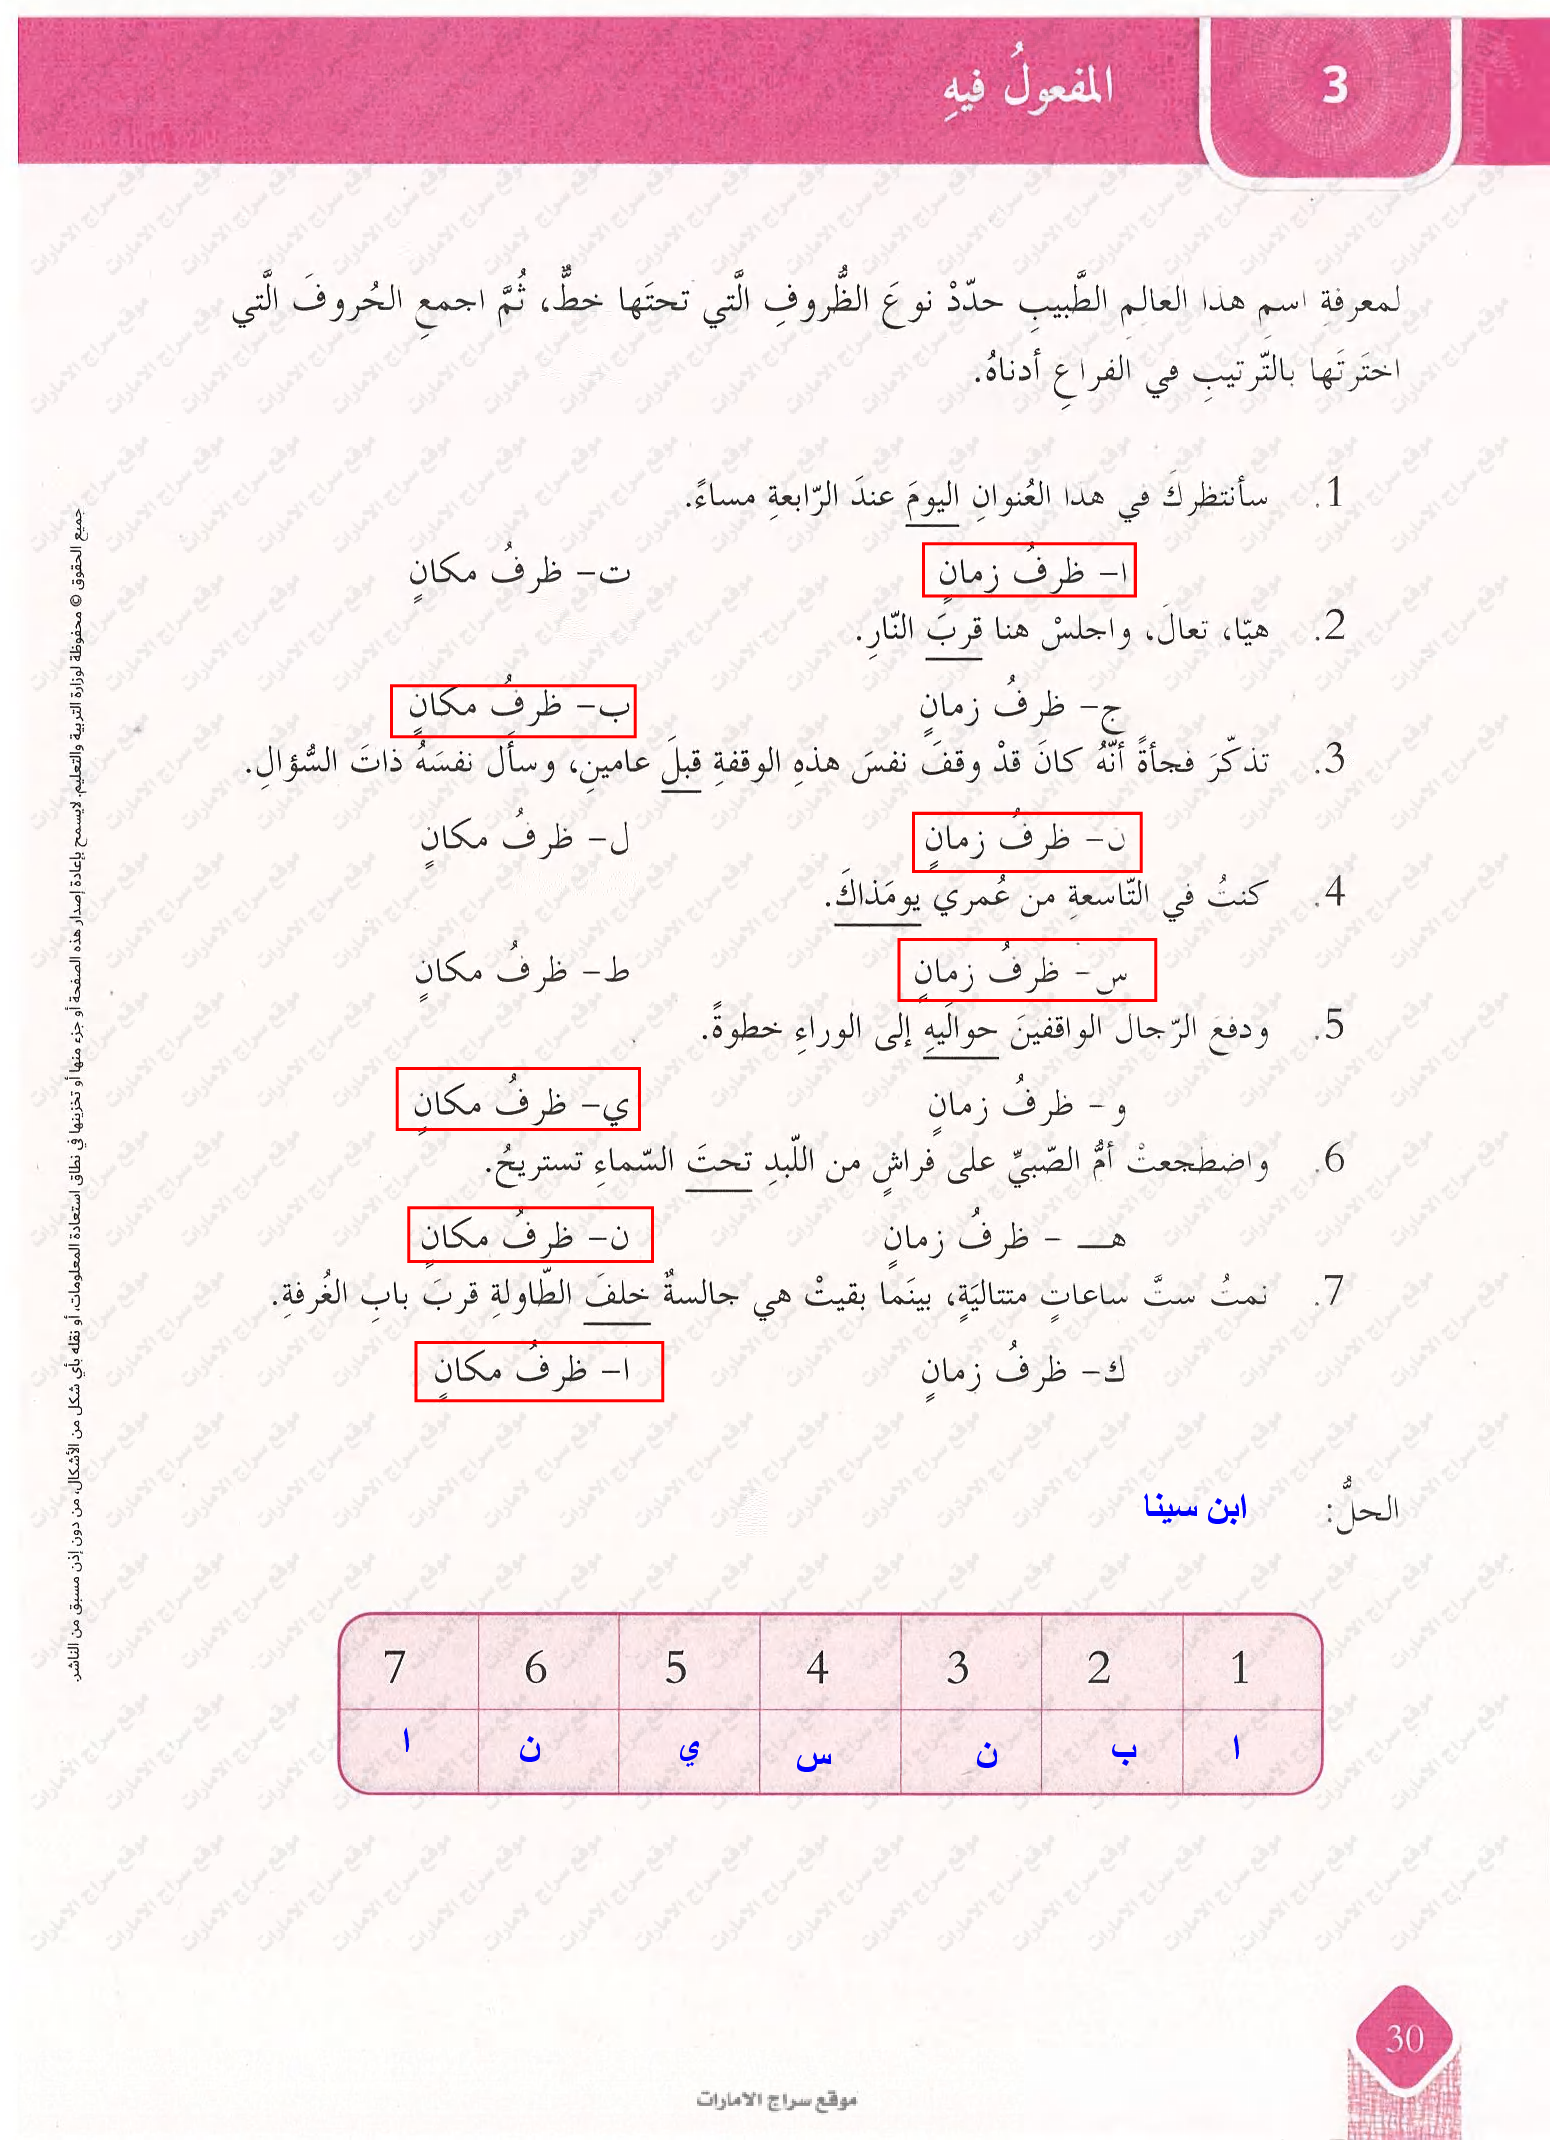 3
المفعولُ فيهِ
لمعرفةِ اسمِ هذا العالمِ الطَّبيبِ حدّدْ نوعَ الظُّروفِ الَّتي تحتَها خطٌّ، ثُمَّ اجمعِ الحُروفَ الَّتي
اختَرتَها بالتّرتيبِ في الفراغِ أدناهُ.
1. سأنتظركَ في هذا العُنوانِ اليومَ عندَ الرّابعةِ مساءً.
ا- ظرفُ زمانٍ ت- ظرفُ مكانٍ
2. هيّا، تعالَ، واجلسْ هنا قربَ النّارِ.
ج- ظرفُ زمانٍ ب- ظرفُ مكانٍ
3. تذكّرَ فجأةً أنّهُ كانَ قدْ وقفَ نفسَ هذهِ الوقفةِ قبلَ عامينِ، وسأل نفسَهُ ذاتَ السُّؤالِ.
ن- ظرفُ زمانٍ ل- ظرفُ مكانٍ
4. كنتُ في التّاسعةِ من عُمري يومَذاكَ.
س- ظرفُ زمانٍ ط- ظرفُ مكانٍ
5. ودفعَ الرّجال الواقفينَ حوالَيهِ إلى الوراءِ خطوةً.
و- ظرفُ زمانٍ ي- ظرفُ مكانٍ
6. واضطجعتْ أمُّ الصّبيِّ على فراشٍ من اللّبدِ تحتَ السّماءِ تستريحُ.
هـ - ظرفُ زمانٍ ن- ظرفُ مكانٍ
7. نمتُ ستَّ ساعاتٍ متتاليَةٍ، بينَما بقيتْ هي جالسةٌ خلفَ الطّاولةِ قربَ بابِ الغُرفةِ.
ك- ظرفُ زمانٍ ا- ظرفُ مكانٍ
الحلُّ: ابن سينا
1 2 3 4 5 6 7
ا ب ن س ي ن ا
جميع الحقوق © محفوظة لوزارة التربية والتعليم. لايسمح بإعادة إصدار هذه الصفحة أو جزء منها أو تخزينها في نطاق استعادة المعلومات، أو نقله بأي شكل من الأشكال، من دون إذن مسبق من الناشر.
30
موقع سراج الامارات